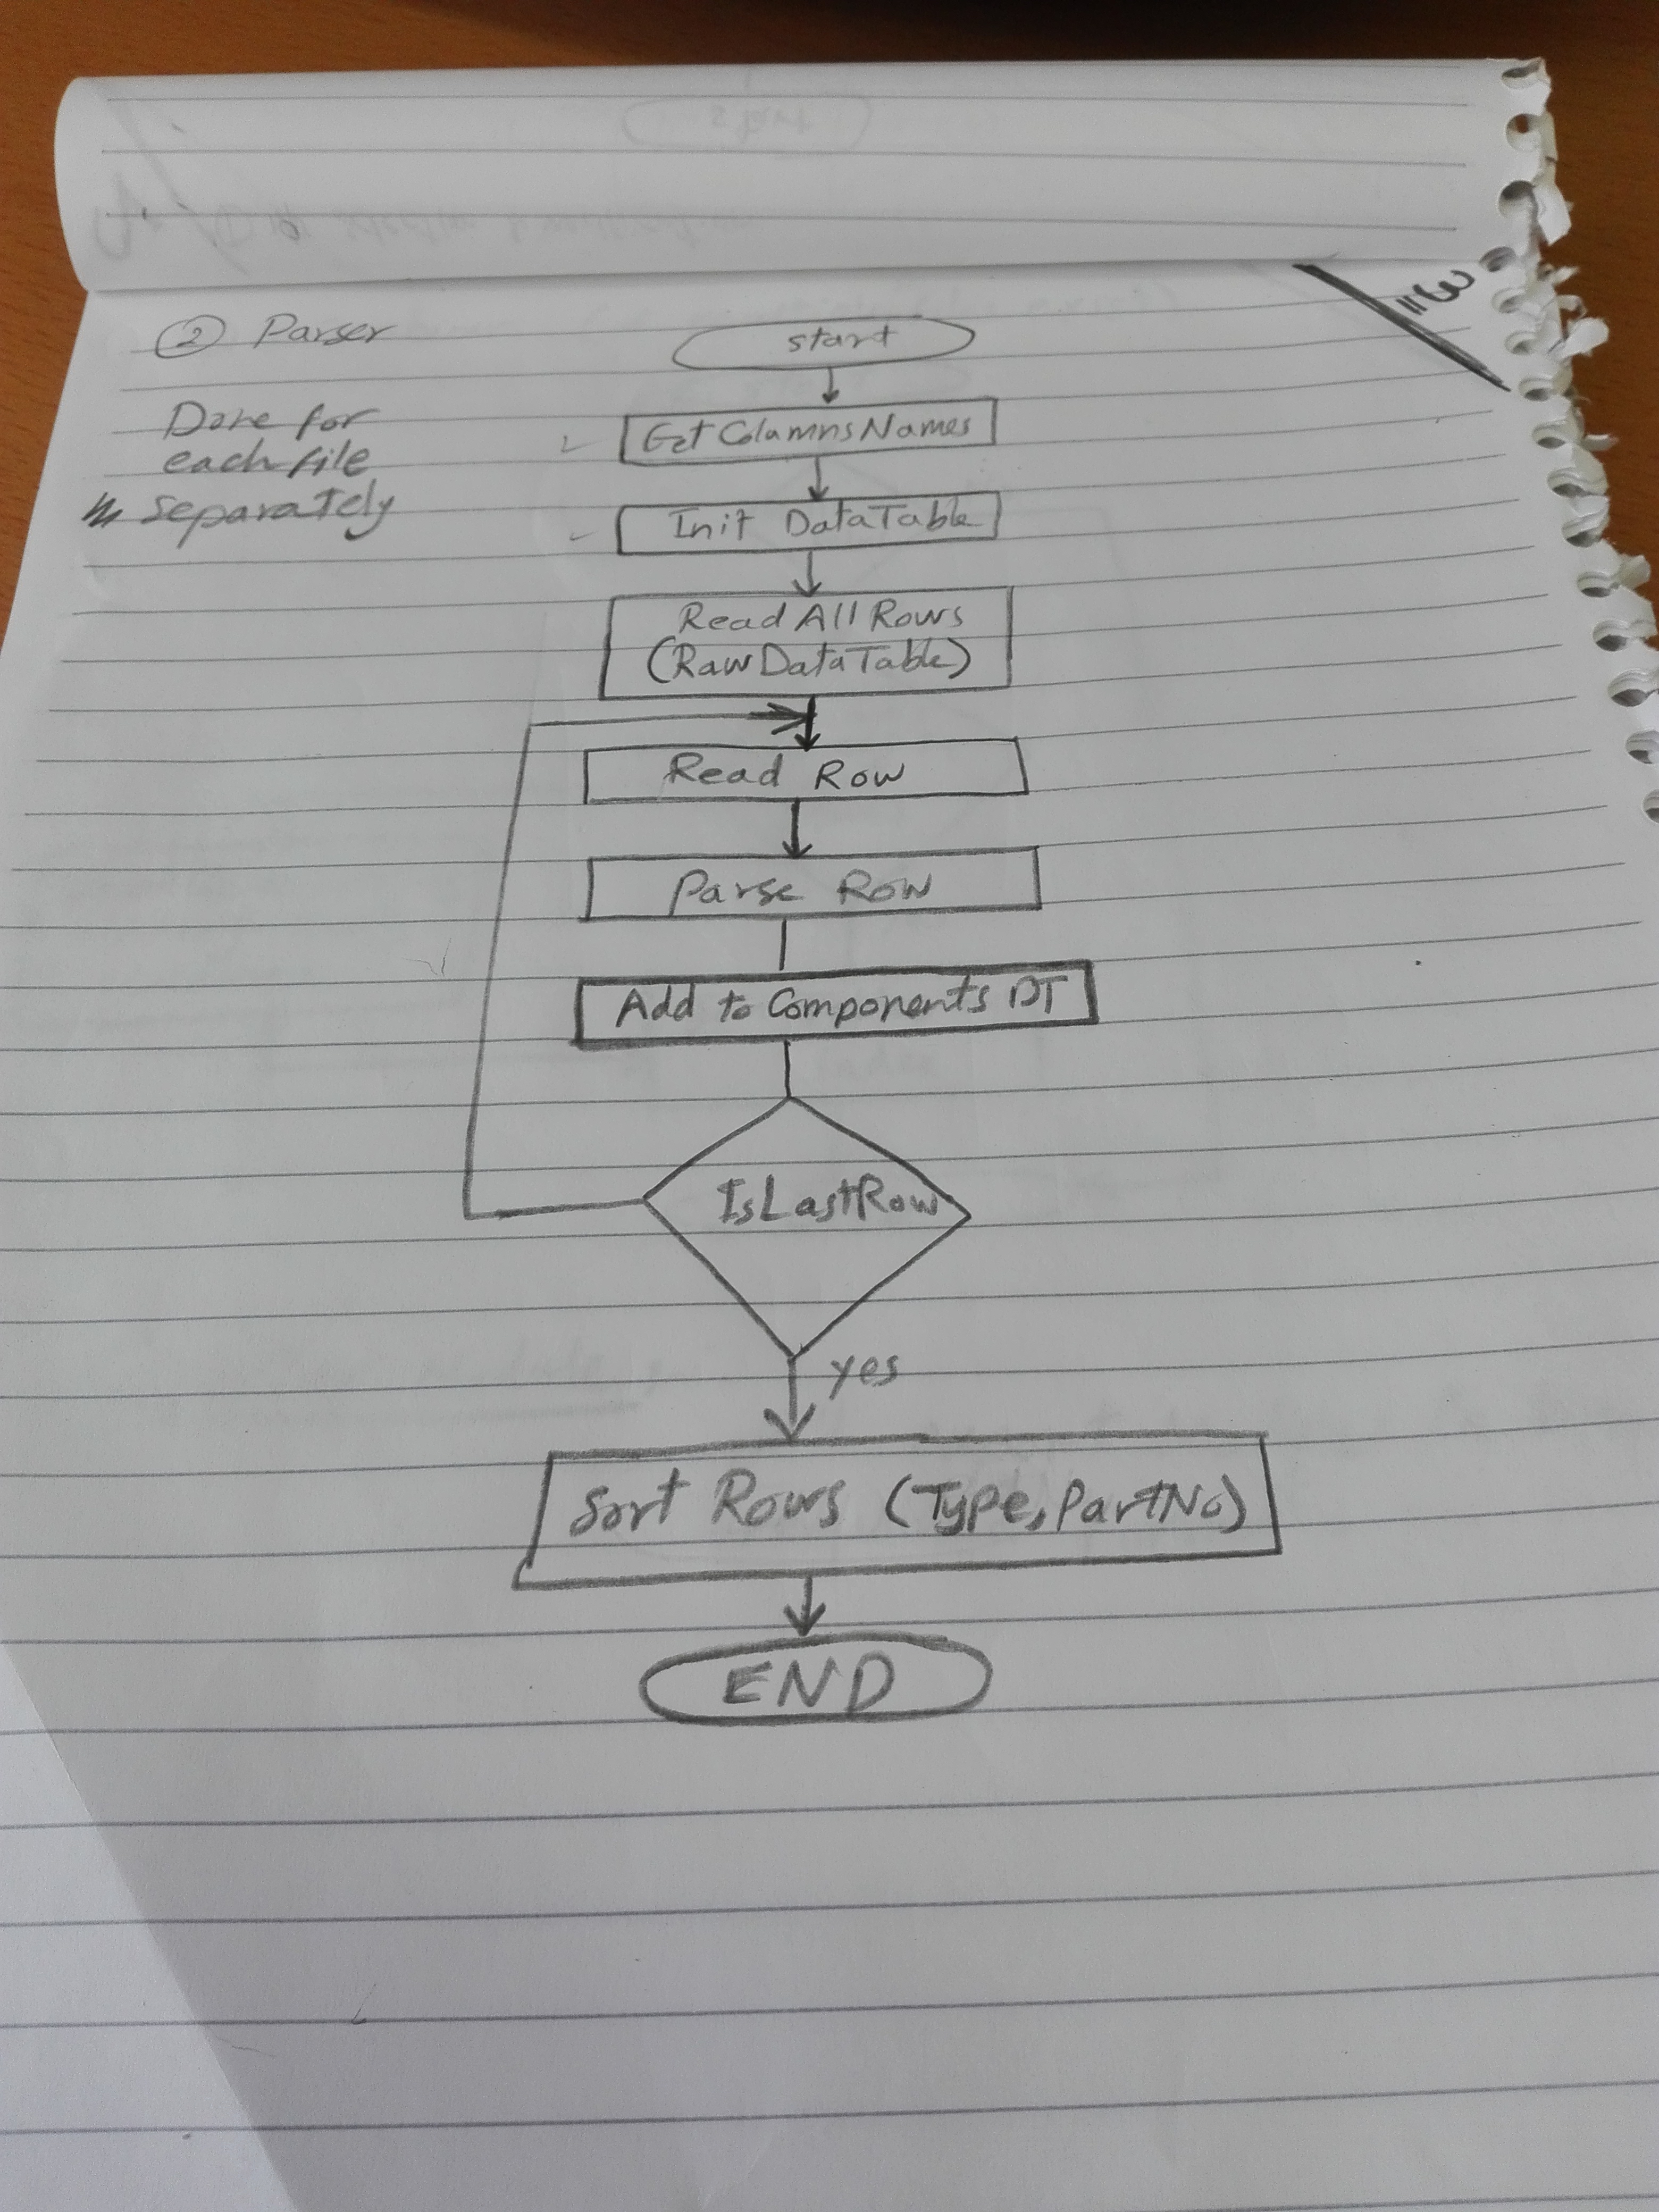 ② Parser
Done for
each file
separately
start
GetColumnsNames
Init DataTable
Read All Rows
(RawDataTable)
Read Row
Parse Row
Add to Components DT
IsLastRow
yes
Sort Rows (Type, PartNo)
END